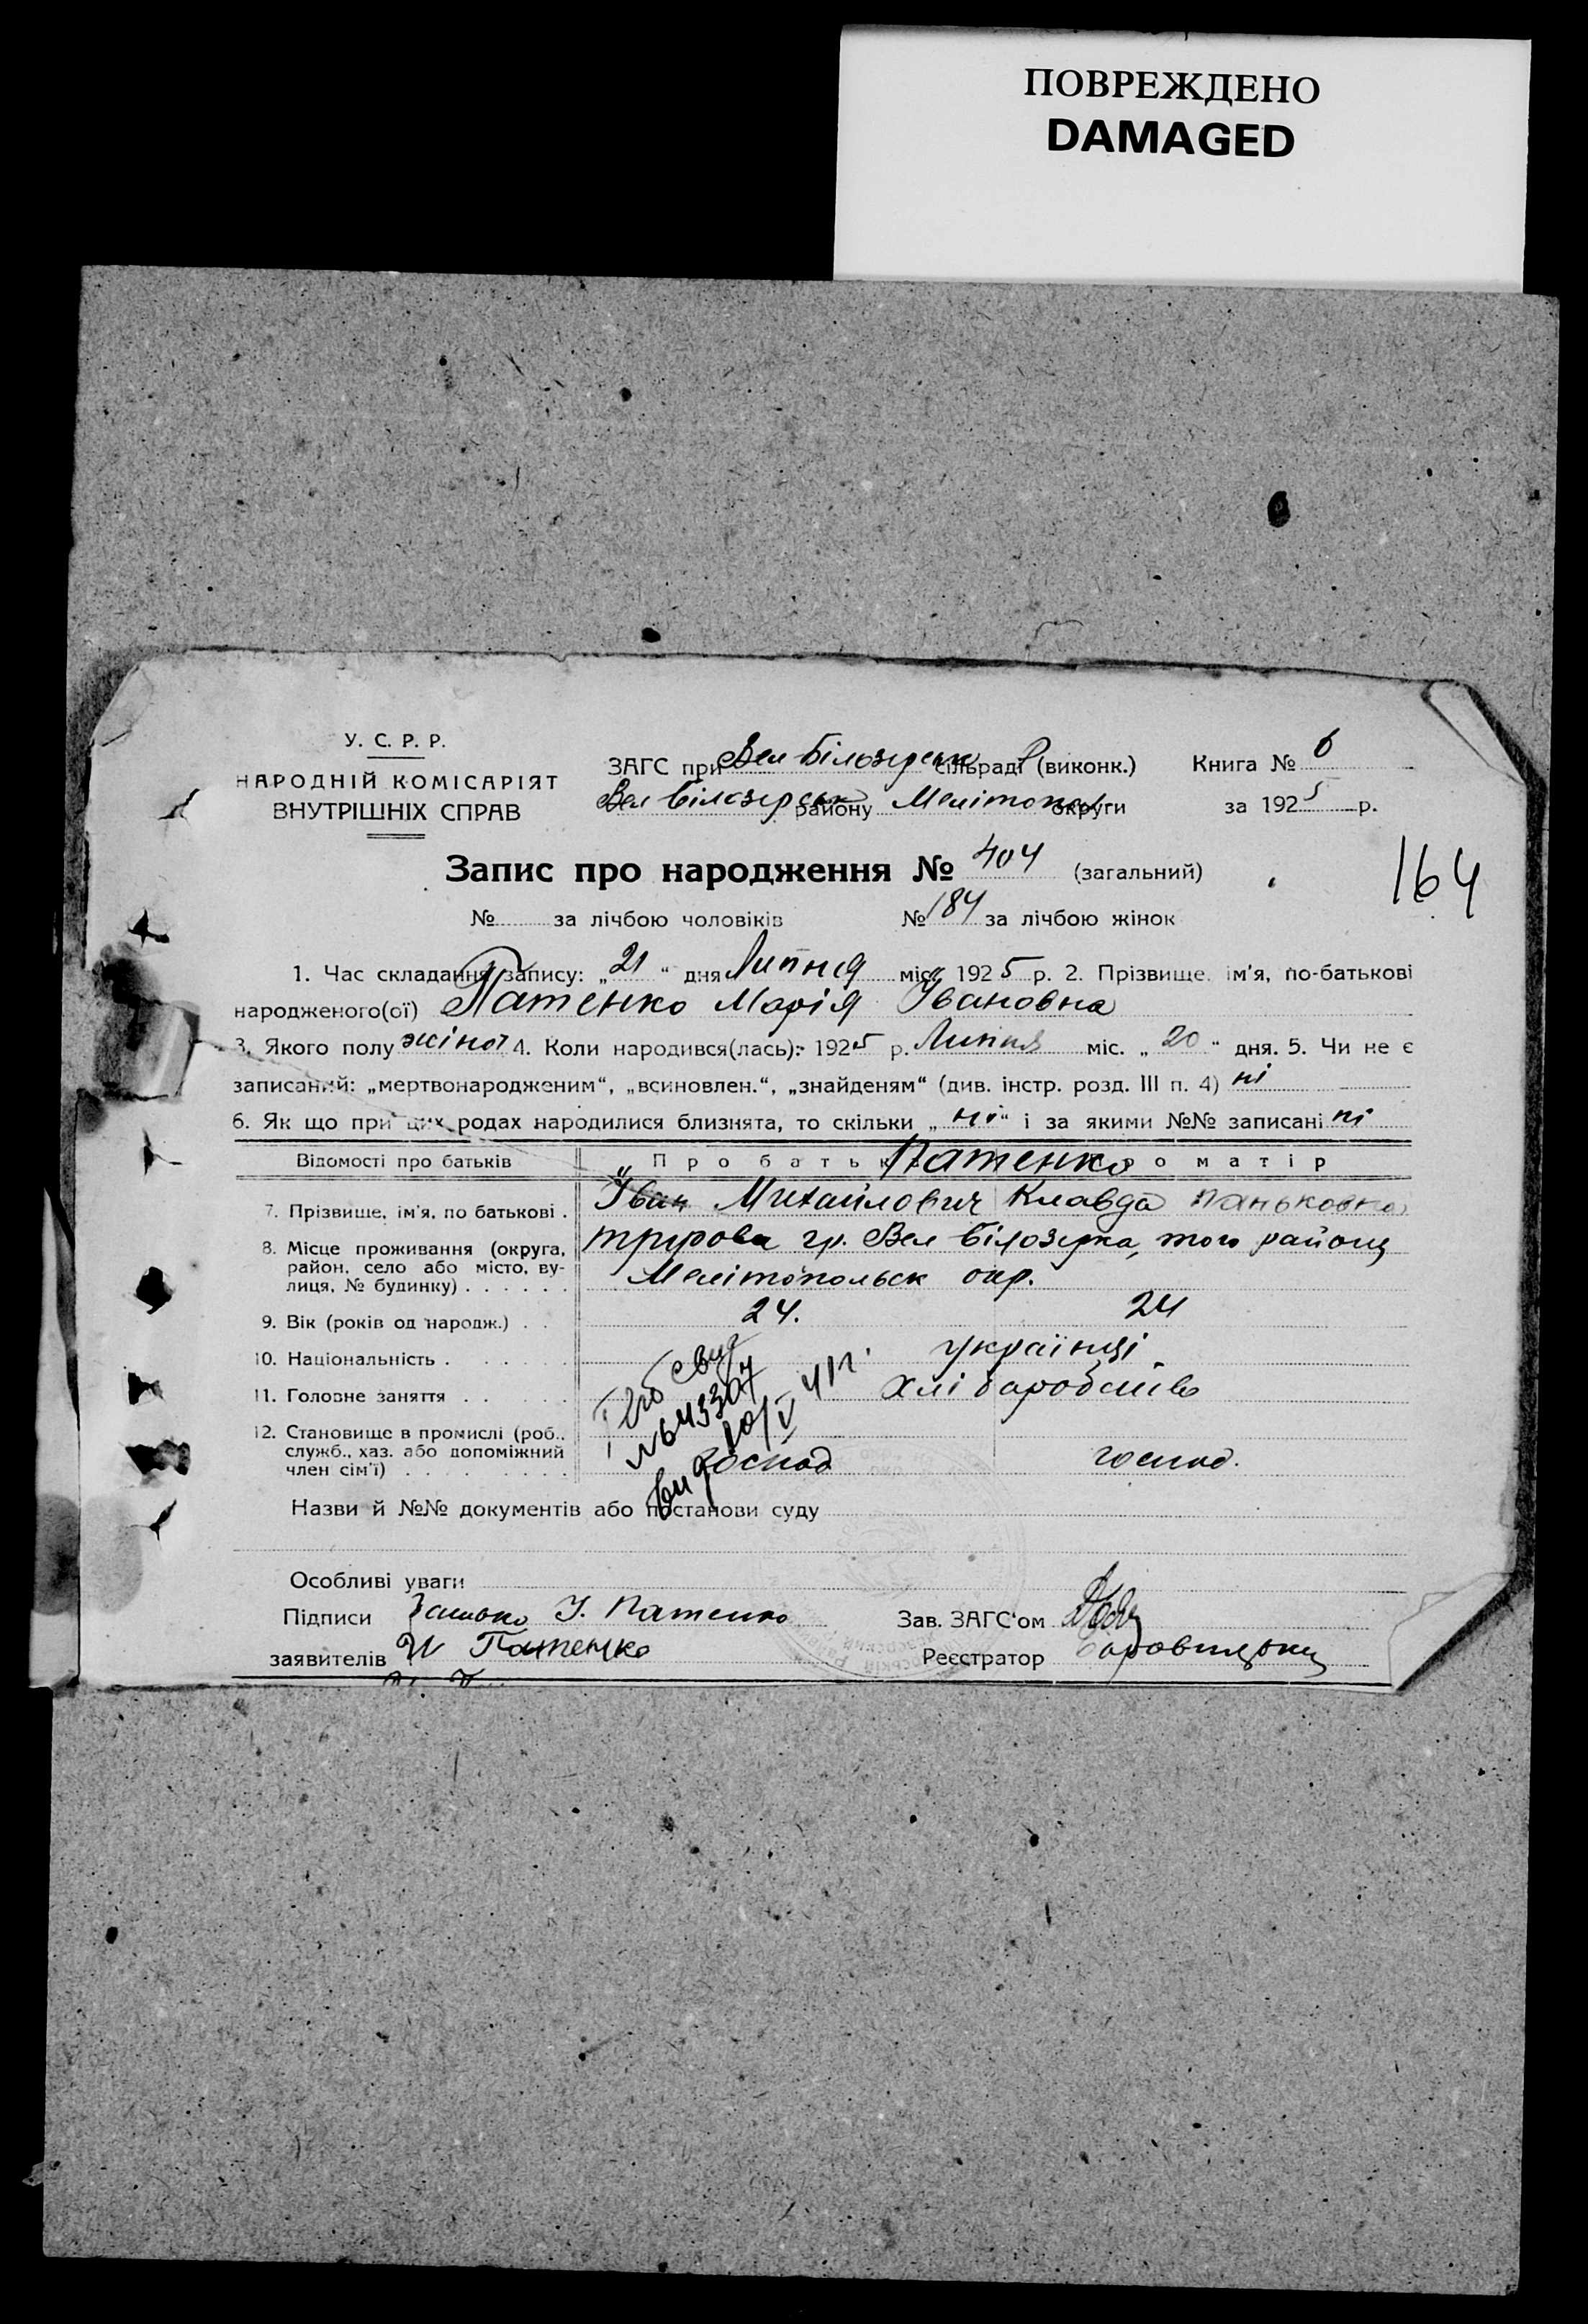 ПОВРЕЖДЕНО
DAMAGED
У. С. Р. Р.
НАРОДНІЙ КОМІСАРІЯТ
ВНУТРІШНІХ СПРАВ
ЗАГС при Вел Білозерськ сільраді (виконк.)
Вел Білозерськ району Мелітопол округи
Книга № 6
за 1925 р.
Запис про народження № 404 (загальний)
164
№ за лічбою чоловіків № 184 за лічбою жінок
1. Час складання запису: „21“ дня Липня міс. 1925 р. 2. Прізвище, ім'я, по-батькові
народженого(ої) Патенко Марія Івановна
3. Якого полу жіноч 4. Коли народився(лась): 1925 р. Липня міс. „20“ дня. 5. Чи не є
записаний: „мертвонародженим“, „всиновлен.“, „знайденям“ (див. інстр. розд. III п. 4) ні
6. Як що при цих родах народилися близнята, то скільки „ні“ і за якими №№ записані ні
Відомості про батьків Про батька Патенко Про матір
7. Прізвище, ім'я, по батькові . Іван Михайлович Клавда Паньковна
8. Місце проживання (округа, гр. Вел Білозерка, того району
район, село або місто, ву-
лиця, № будинку) . . . . . . Мелітопольськ окр.
9. Вік (років од народж.) . . 24. 24
10. Національність . . . . . . українці
11. Головне заняття . . . . . Хліборобство
12. Становище в промислі (роб.,
служб., хаз. або допоміжний
член сім'ї) . . . . . . . . . господ господ.
№643307
вид 10/V 41 г.
Назви й №№ документів або постанови суду
Особливі уваги
Підписи Батько І. Патенко
заявителів И Патенко
Зав. ЗАГС'ом
Реєстратор